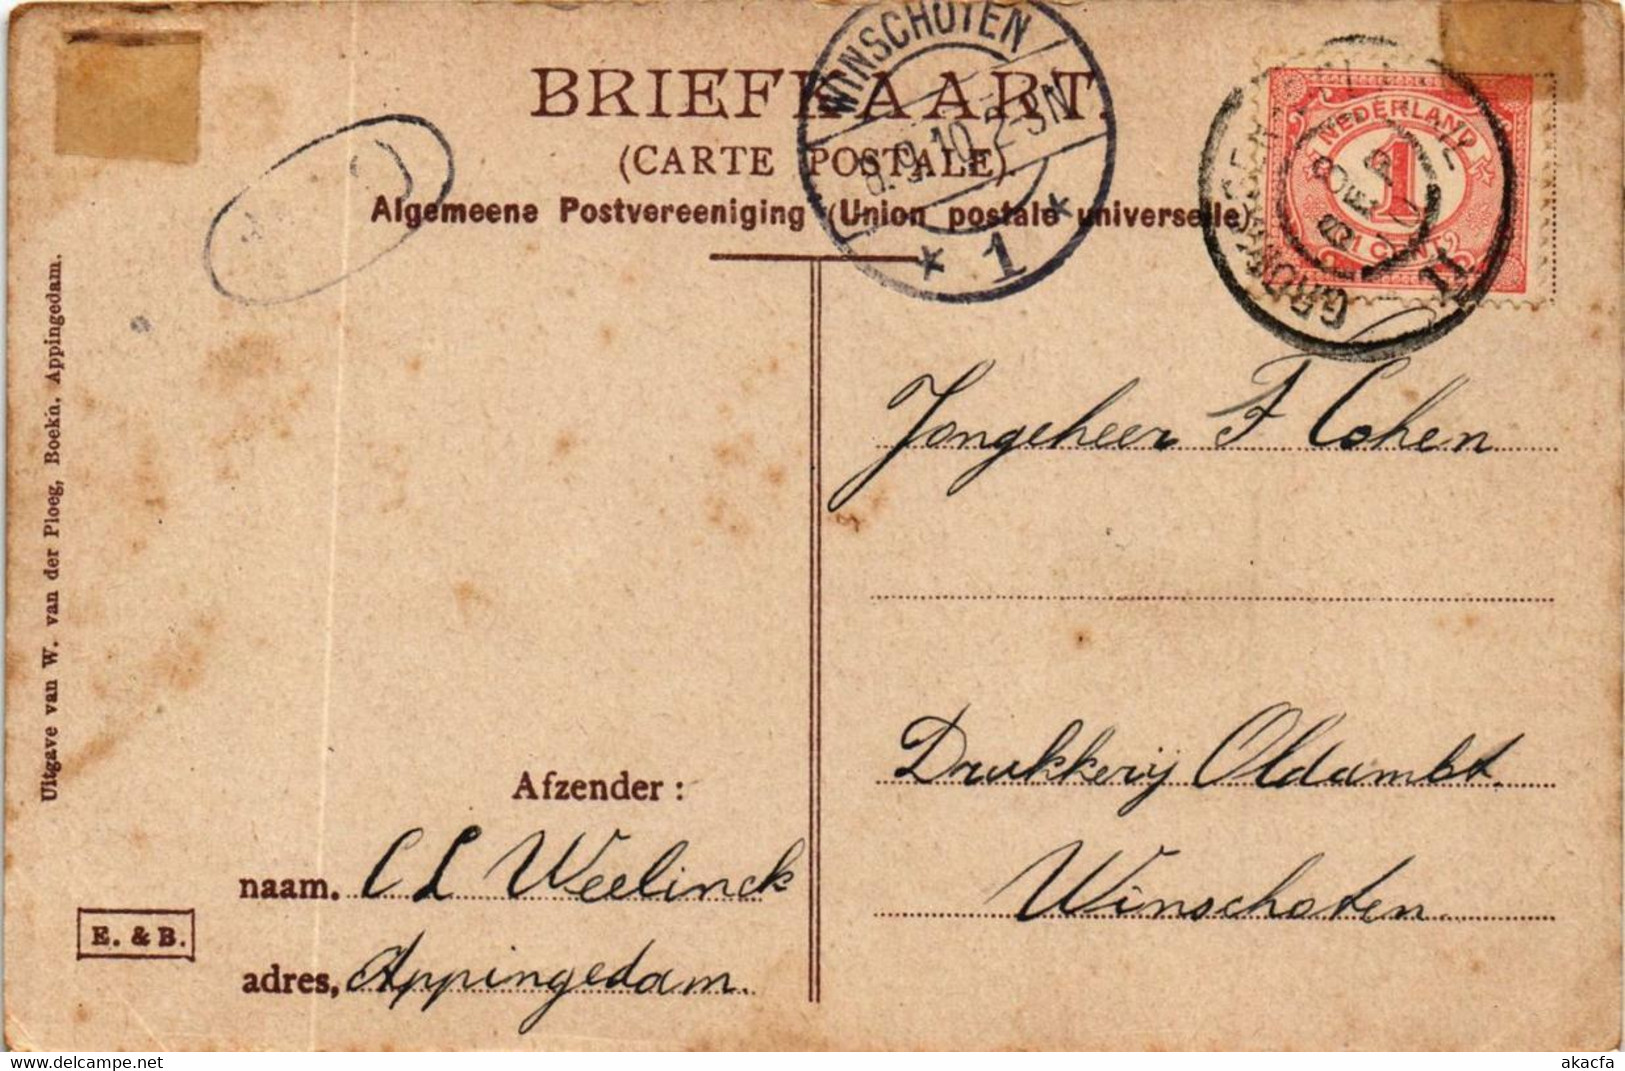 WINSCHOTEN
8.9.10.2-3N
* 1 *
BRIEFKAART.
(CARTE POSTALE)
Algemeene Postvereeniging (Union postale universelle)
NEDERLAND
1
1 CENT
II
Jongeheer F Cohen
Drukkerij Oldambt.
Winschoten
Afzender:
naam. C L Weelinck
adres, Appingedam.
E. & B.
Uitgave van W. van der Ploeg, Boekn. Appingedam.
delcampe.net
akacfa